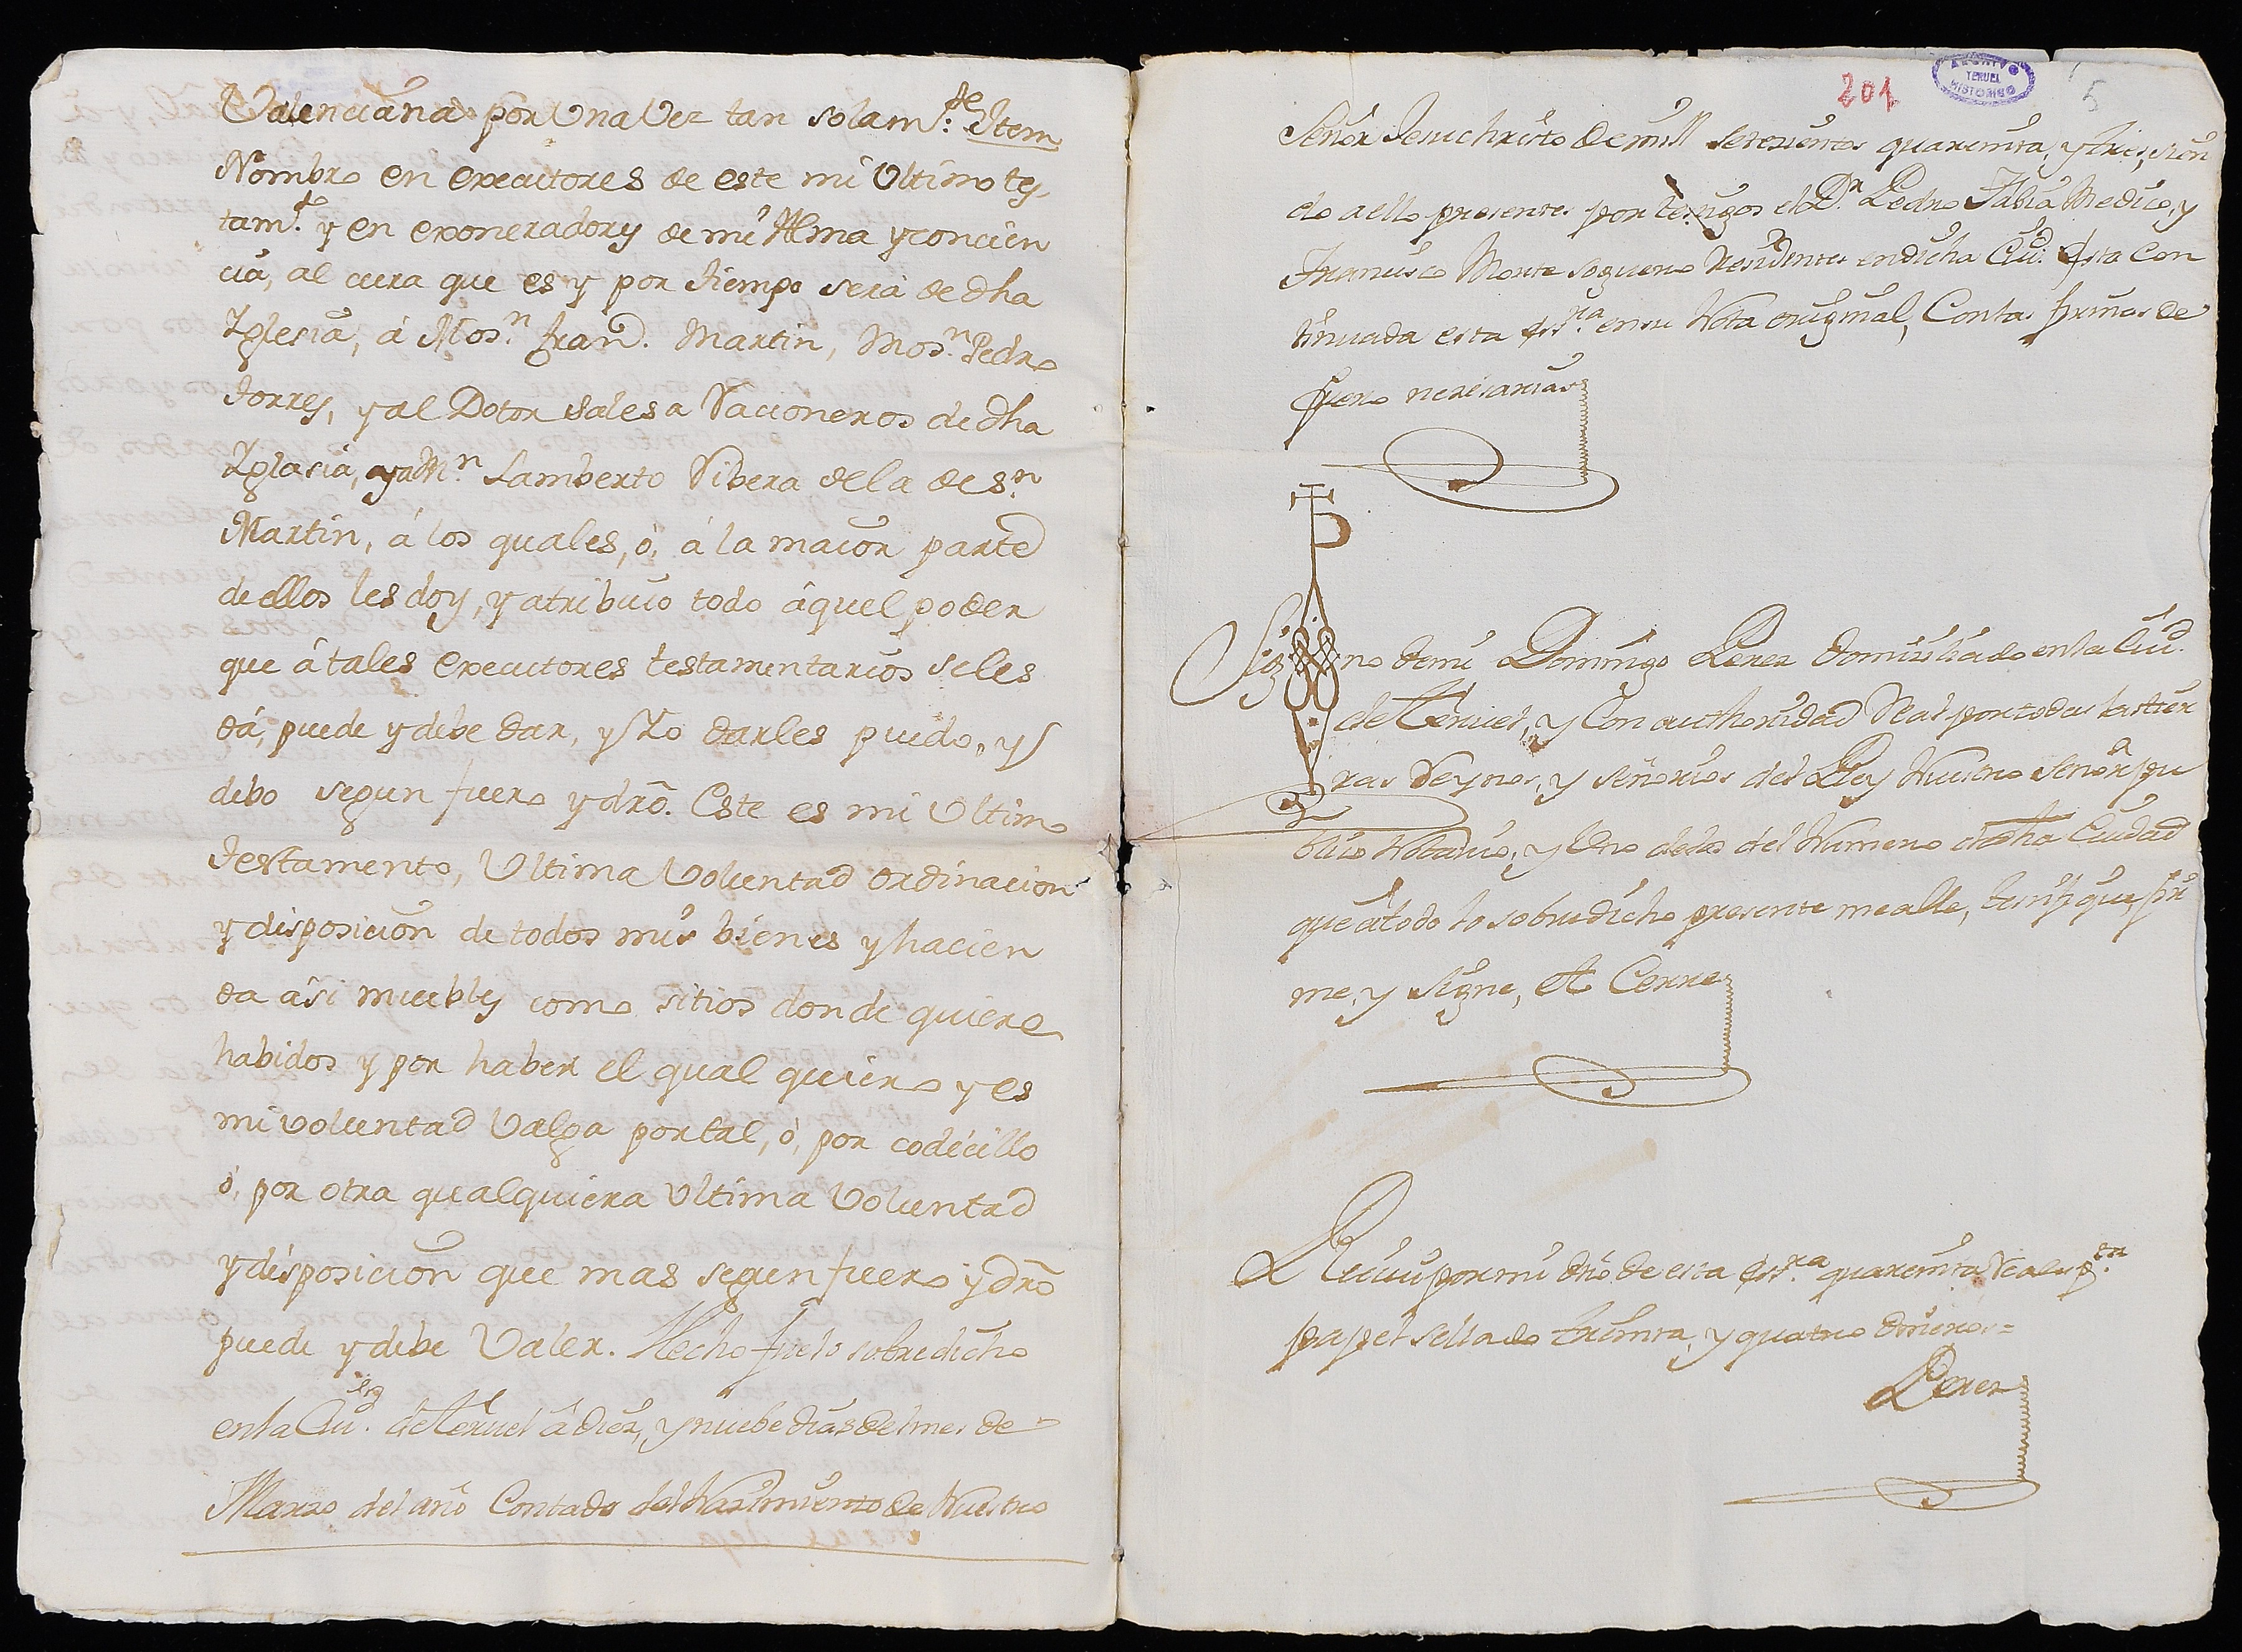 Valenciana por Una Vez tan solam.te Item
Nombro en executores de este mi Ultimo tes-
tam.to y en exoneradores de mi Alma y concien
cia, al cura que es y por tiempo serà de dha
Yglesia, á Mos.n Fran.co Martin, Mos.n Pedro
Torres, y al Dotor Salesa Racioneros de dha
Yglesia, y a M.n Lamberto Ribera de la de S.n
Martin, á los quales, ó, á la maior parte
de ellos les doy, y atribuio todo àquel poder
que á tales executores testamentarios se les
dá, puede y debe dar, y Yo darles puedo, y
debo segun fuero y dro. Este es mi Ultimo
testamento, Ultima Voluntad ordinacion
y disposicion de todos mis bienes y hacien
da ási muebles como sitios donde quiere
habidos y por haber el qual quiero y es
mi voluntad Valga por tal, ó, por codicillo
ó, por otra qualquiera Ultima Voluntad
y disposicion que mas segun fuero y dro
puede y debe Valer. Hecho fue lo sobredicho
en la Ciu.d de Teruel á diez, y nuebe dias del mes de
Marzo del año Contado del Nazimiento de Nuestro
201
ARCHIVO
TERUEL
HISTORICO
5
Señor Jesuchristo de mill setezientos quarenta, y tres, sien
do a ello presentes por testigos el D.r Pedro Fabia Medico, y
Francisco Monte soguero Residentes en dicha Ciu.d Esta Con
tinuada esta ess.ra en su Nota original, Con las firmas de
fuero nezesarias
Sig no de mi Domingo Perez domiziliado en la Ciu.d
de Teruel, y Con authoridad Real por todas las tier
ras Reynos, y señorios del Rey Nuestro Señor pu
blico Notario, y Uno de los del Numero de dha Ciudad
que á todo lo sobredicho presente me alle, testifique, fir
me, y signe, et Cerre
Reciui por mi dro de esta ess.ra quarenta Reales p.ta
papel sellado treinta, y quatro dineros=
Perez